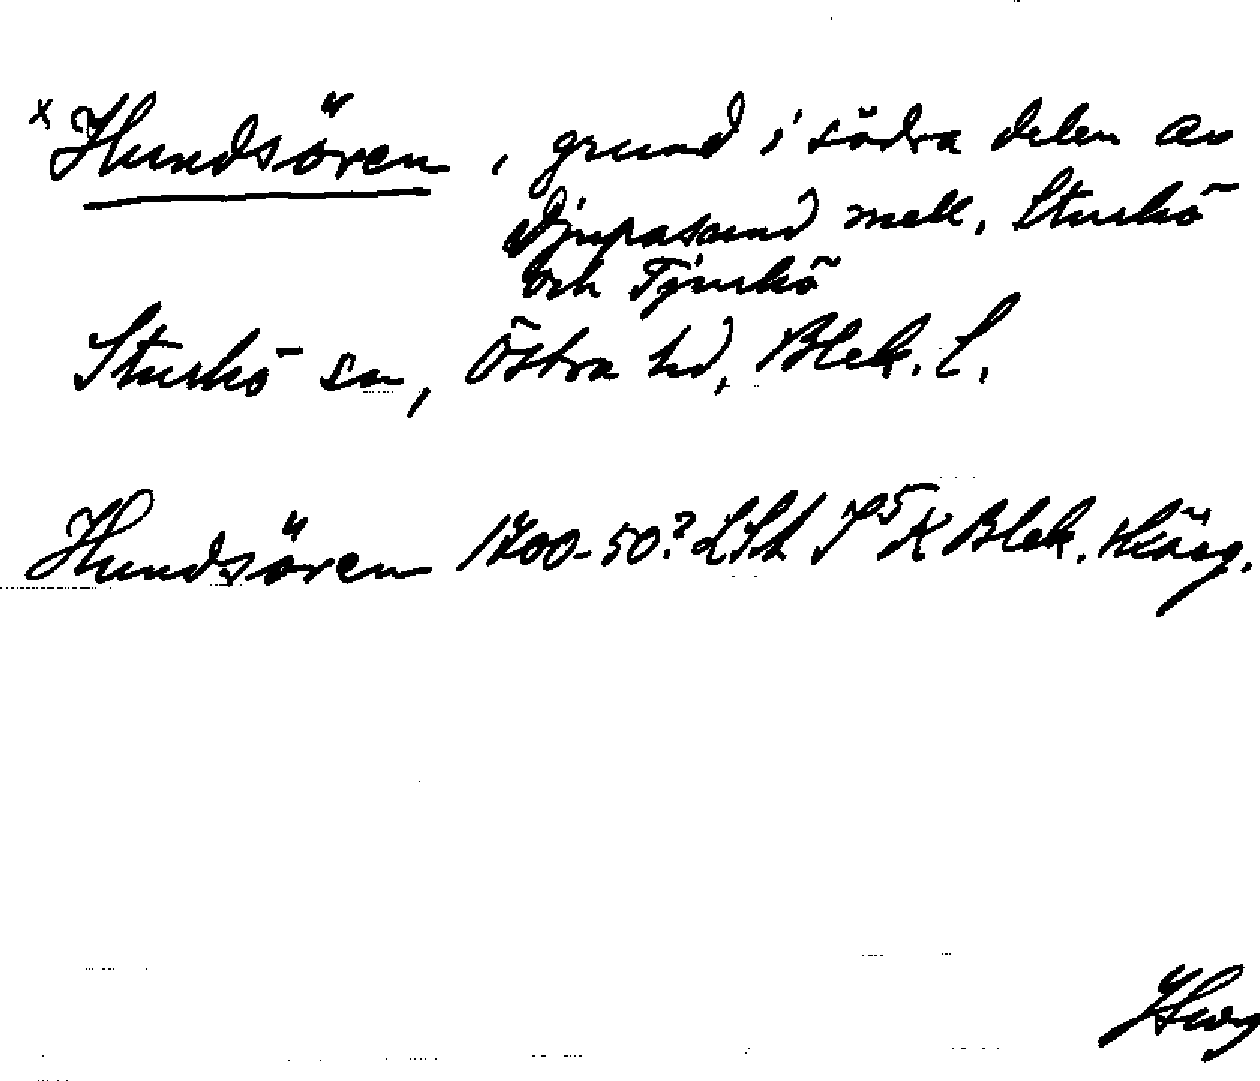 x Hundsören, grund i södra delen av
Djupasund mell. Sturkö
och Tjurkö
Sturkö sn, Östra hd, Blek. l.
Hundsören 1700-50? Blek.